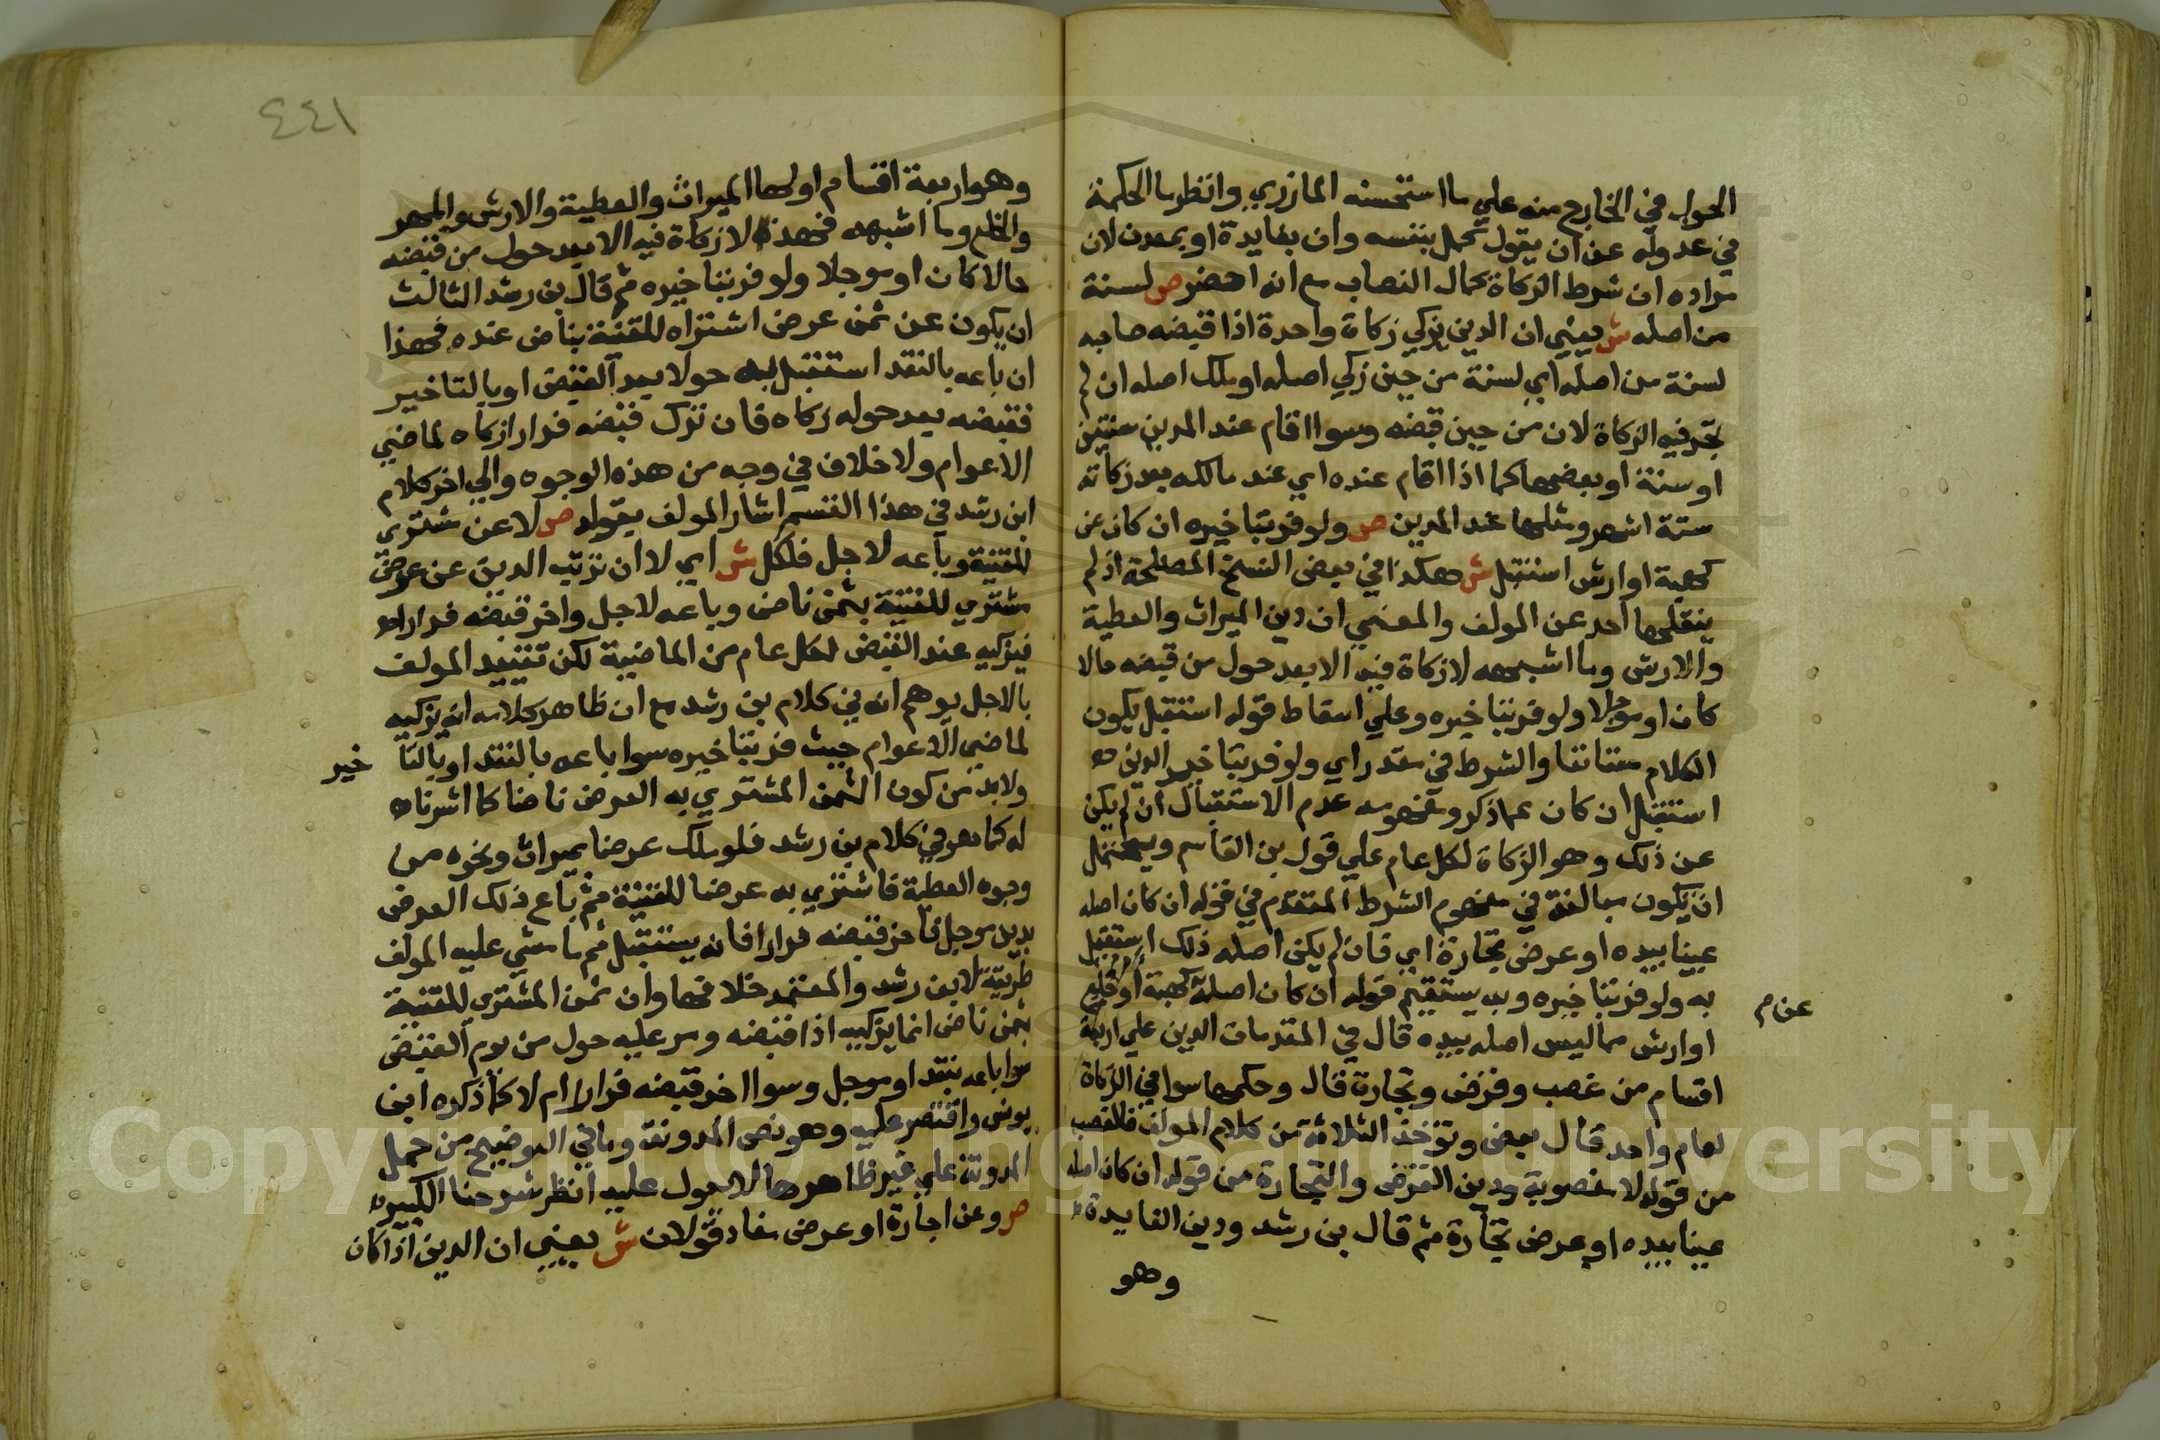 الحول في الخارج منه علي ما استحسنه المازري وانظر ما الحكمة
في عدوله عن ان يقول تكمل بنفسه وان بفايدة او بمعدن لان
مراده ان شرط الزكاة كمال النصاب مع انه احضر ص لسنة
من اصله ش يعني ان الدين يزكي زكاة واحدة اذا قبضه صاحبه
لسنة من اصله اي لسنة من حين زكي اصله او ملك اصله ان لم
تجر فيه الزكاة لان من حين قبضه وسوا اقام عند المدين سنتين
او سنة او بعضها كما اذا اقام عنده اي عند مالكه بعد زكاته
ستة اشهر ومثلها عند المدين ص ولو فر بتاخيره ان كان عن
كهبة او ارش استقبل ش هكذا في بعض النسخ المصلحة اذ لم
ينقلها احد عن المولف والمعني ان دين الميراث والعطية
والارش وما اشبهه لا زكاة فيه الا بعد حول من قبضه حالا
كان او موجلا ولو فر بتاخيره وعلي اسقاط قوله استقبل يكون
الكلام مستانفا والشرط في مقدر اي ولو فر بتاخير الدين
استقبل ان كان عما ذكر ومفهومه عدم الاستقبال ان لم يكن
عن ذلك وهو الزكاة لكل عام علي قول بن القاسم ويحتمل
ان يكون مبالغة في مفهوم الشرط المتقدم في قوله ان كان اصله
عينا بيده او عرض تجارة اي فان لم يكن اصله ذلك استقبل
به ولو فر بتاخيره وبه يستقيم قوله ان كان اصله كهبة او خلع
عن م
او ارش مما ليس اصله بيده قال في المقدمات الدين علي اربعة
اقسام من غصب وقرض وتجارة قال وحكمها سوا في الزكاة
لعام واحد قال بعض وتؤخذ الثلاثة من كلام المولف فالغصب
من قوله لا مغصوبة ودين القرض والتجارة من قوله ان كان اصله
عينا بيده او عرض تجارة ثم قال بن رشد ودين الفايدة
وهو
٤٤١
وهو اربعة اقسام اولها الميراث والعطية والارش والمهر
والخلع وما اشبهه فهذا لا زكاة فيه الا بعد حول من قبضه
حالا كان او موجلا ولو فر بتاخيره ثم قال بن رشد الثالث
ان يكون عن ثمن عرض اشتراه للقنية بناض عنده فهذا
ان باعه بالنقد استقبل به حولا بعد القبض او بالتاخير
فقبضه بعد حوله زكاه فان ترك قبضه فرارا زكاه لماضي
الاعوام ولا خلاف في وجه من هذه الوجوه والي اخر كلام
ابن رشد في هذا القسم اشار المولف بقوله ص لا عن مشتري
للقنية وباعه لاجل فلكل ش اي لا ان ترتب الدين عن عرض
مشتري للقنية بثمن ناض وباعه لاجل واخر قبضه فرارا
فيزكيه عند القبض لكل عام من الماضية لكن تقييد المولف
بالاجل يوهم انه في كلام بن رشد مع ان ظاهر كلامه انه يزكيه
لماضي الاعوام حيث فر بتاخيره سوا باعه بالنقد او بالتا
خير
ولا بد من كون الثمن المشتري به العرض ناضا كما اشرنا
له كما هو في كلام بن رشد فلو ملك عرضا بميراث ونحوه من
وجوه العطية فاشتري به عرضا للقنية ثم باع ذلك العرض
بدين موجل فاخر قبضه فرارا فانه يستقبل ثم ما مشي عليه المولف
طريقة لابن رشد والمعتمد خلافها وان ثمن المشتري للقنية
بثمن ناض انما يزكيه اذا قبضه ومر عليه حول من يوم القبض
سوا باعه بنقد او موجل وسوا اخر قبضه فرارا ام لا كما ذكره ابن
يونس واقتصر عليه وهو نص المدونة وما في التوضيح من حمل
المدونة علي غير ظاهرها لا يعول عليه انظر شرحنا الكبير
ص وعن اجارة او عرض مفاد قولان ش يعني ان الدين اذا كان